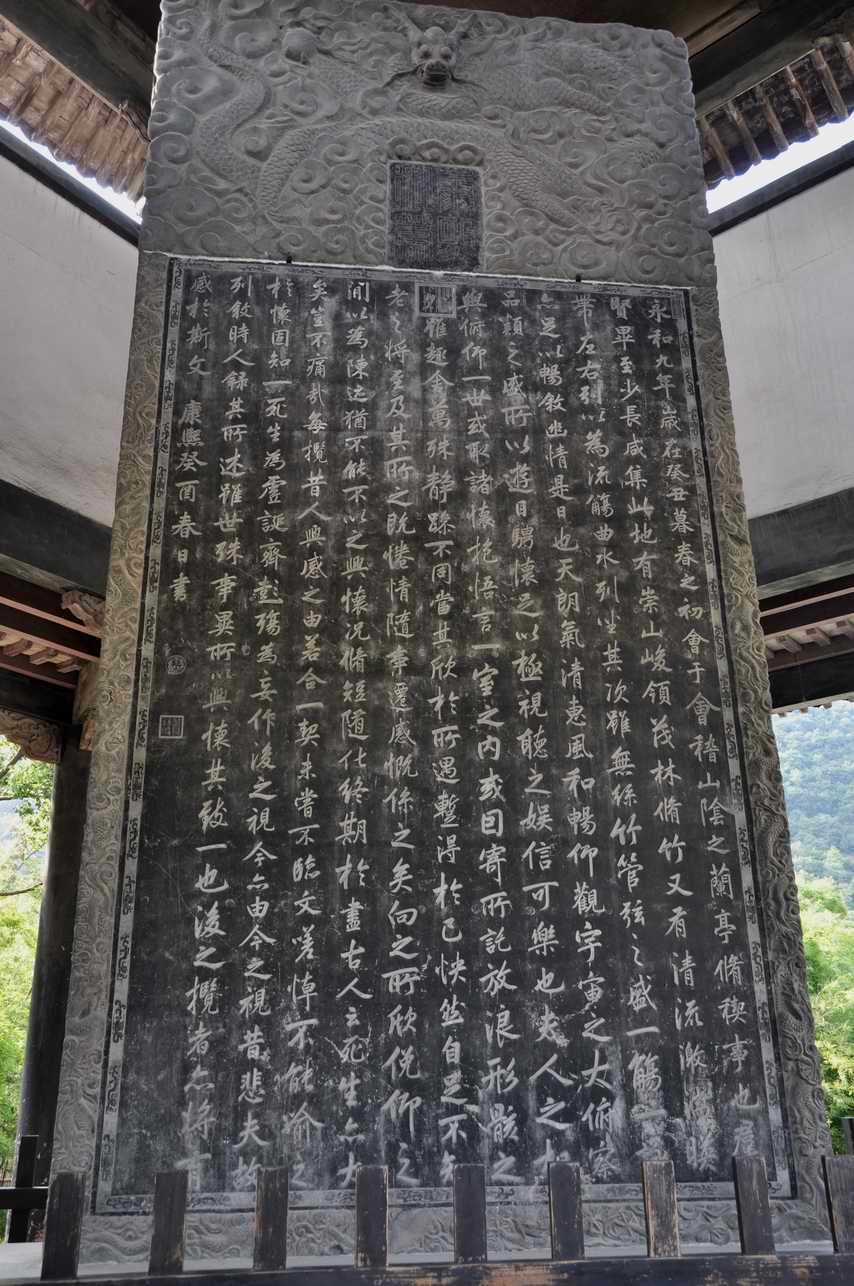 永和九年歲在癸丑暮春之初會于會稽山陰之蘭亭脩稧事也羣
賢畢至少長咸集此地有崇山峻領茂林脩竹又有清流激湍暎
帶左右引以為流觴曲水列坐其次雖無絲竹管弦之盛一觴一
亦足以暢敘幽情是日也天朗氣清惠風和暢仰觀宇宙之大俯察
品類之盛所以遊目騁懷足以極視聽之娛信可樂也夫人之相
與俯仰一世或取諸懷抱悟言一室之內或因寄所託放浪形骸之
雖趣舍萬殊靜躁不同當其欣於所遇蹔得於己快然自足不知
老之將至及其所之既惓情隨事遷感慨係之矣向之所欣俛仰之
間以為陳迹猶不能不以之興懷況脩短隨化終期於盡古人云死生亦大
矣豈不痛哉每攬昔人興感之由若合一契未嘗不臨文嗟悼不能喻之
於懷固知一死生為虛誕齊彭殤為妄作後之視今亦由今之視昔悲夫故
列敘時人錄其所述雖世殊事異所以興懷其致一也後之攬者亦將有
感於斯文 康熙癸酉春日書